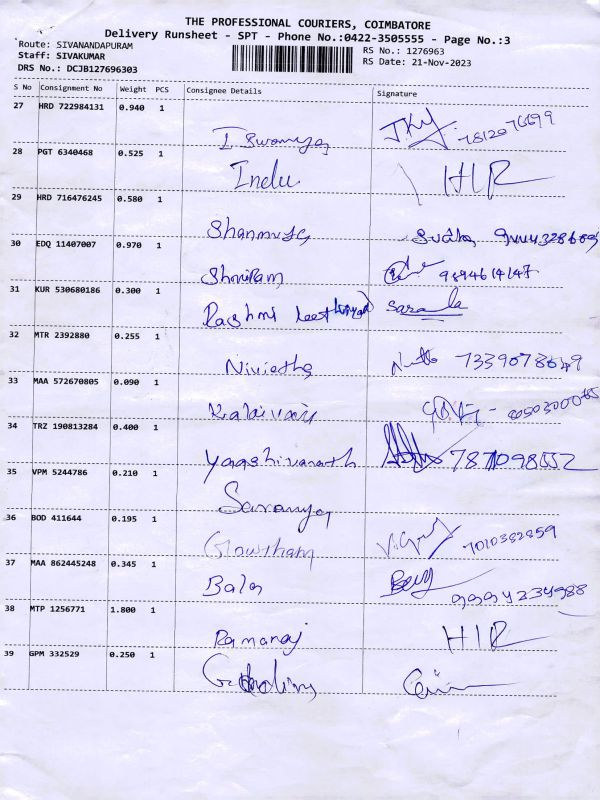 THE PROFESSIONAL COURIERS, COIMBATORE
Delivery Runsheet - SPT - Phone No.:0422-3505555 - Page No.:3
Route: SIVANANDAPURAM
RS No.: 1276963
Staff: SIVAKUMAR
RS Date: 21-Nov-2023
DRS No.: DCJB127696303
S No Consignment No Weight PCS Consignee Details Signature
27 HRD 722984131 0.940 1
7812076699
28 PGT 6340468 0.525 1
Indu HIR
29 HRD 716476245 0.580 1
30 EDQ 11407007 0.970 1
Shriram 9894614147
31 KUR 530680186 0.300 1
Rashmi
32 MTR 2392880 0.255 1
Nivietha 7339078649
33 MAA 572670805 0.090 1
Kalaivani
34 TRZ 190813284 0.400 1
35 VPM 5244786 0.210 1
Saranya
36 BOD 411644 0.195 1
Gowtham 7010382859
37 MAA 862445248 0.345 1
Bala 9994234988
38 MTP 1256771 1.800 1
Ramaraj HIR
39 GPM 332529 0.250 1